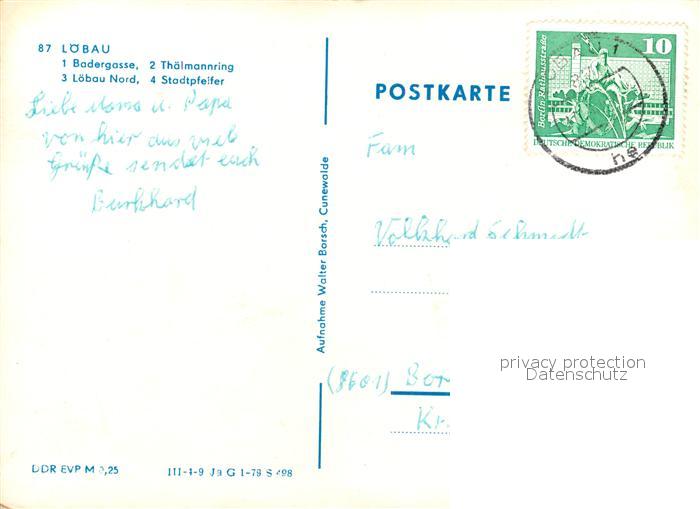 87 LÖBAU
1 Badergasse, 2 Thälmannring
3 Löbau Nord, 4 Stadtpfeifer
Liebe Mama u. Papa
von hier aus viel
Grüße sendet euch
Burkhard
DDR EVP M 0,25
III-4-9 Ja G 1-79 S 498
Aufnahme Walter Borsch, Cunewalde
POSTKARTE
10
Berlin, Rathausstraße
DEUTSCHE DEMOKRATISCHE REPUBLIK
Fam
Volkhard Schmidt
privacy protection
Datenschutz
(8601) Bor
Kr.